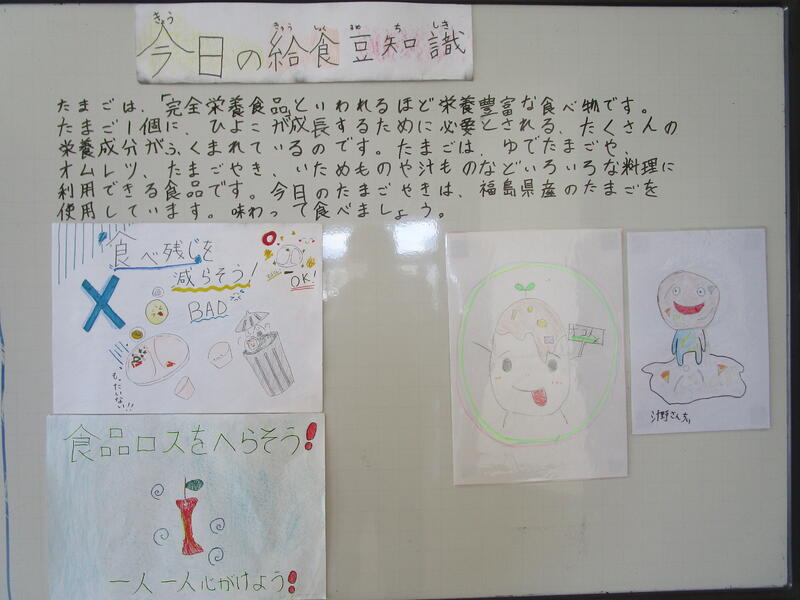 きょう きゅう しょく まめ ち しき
今日の給食豆知識
たまごは、「完全栄養食品」といわれるほど栄養豊富な食べ物です。
たまご1個に、ひよこが成長するために必要とされる、たくさんの
栄養成分がふくまれているのです。たまごは、ゆでたまごや、
オムレツ、たまごやき、いためものや汁ものなどいろいろな料理に
利用できる食品です。今日のたまごやきは、福島県産のたまごを
使用しています。味わって食べましょう。
食べ残しを
減らそう!
OK!
BAD
もったいない!!
食品ロスをへらそう!
一人一人心がけよう!